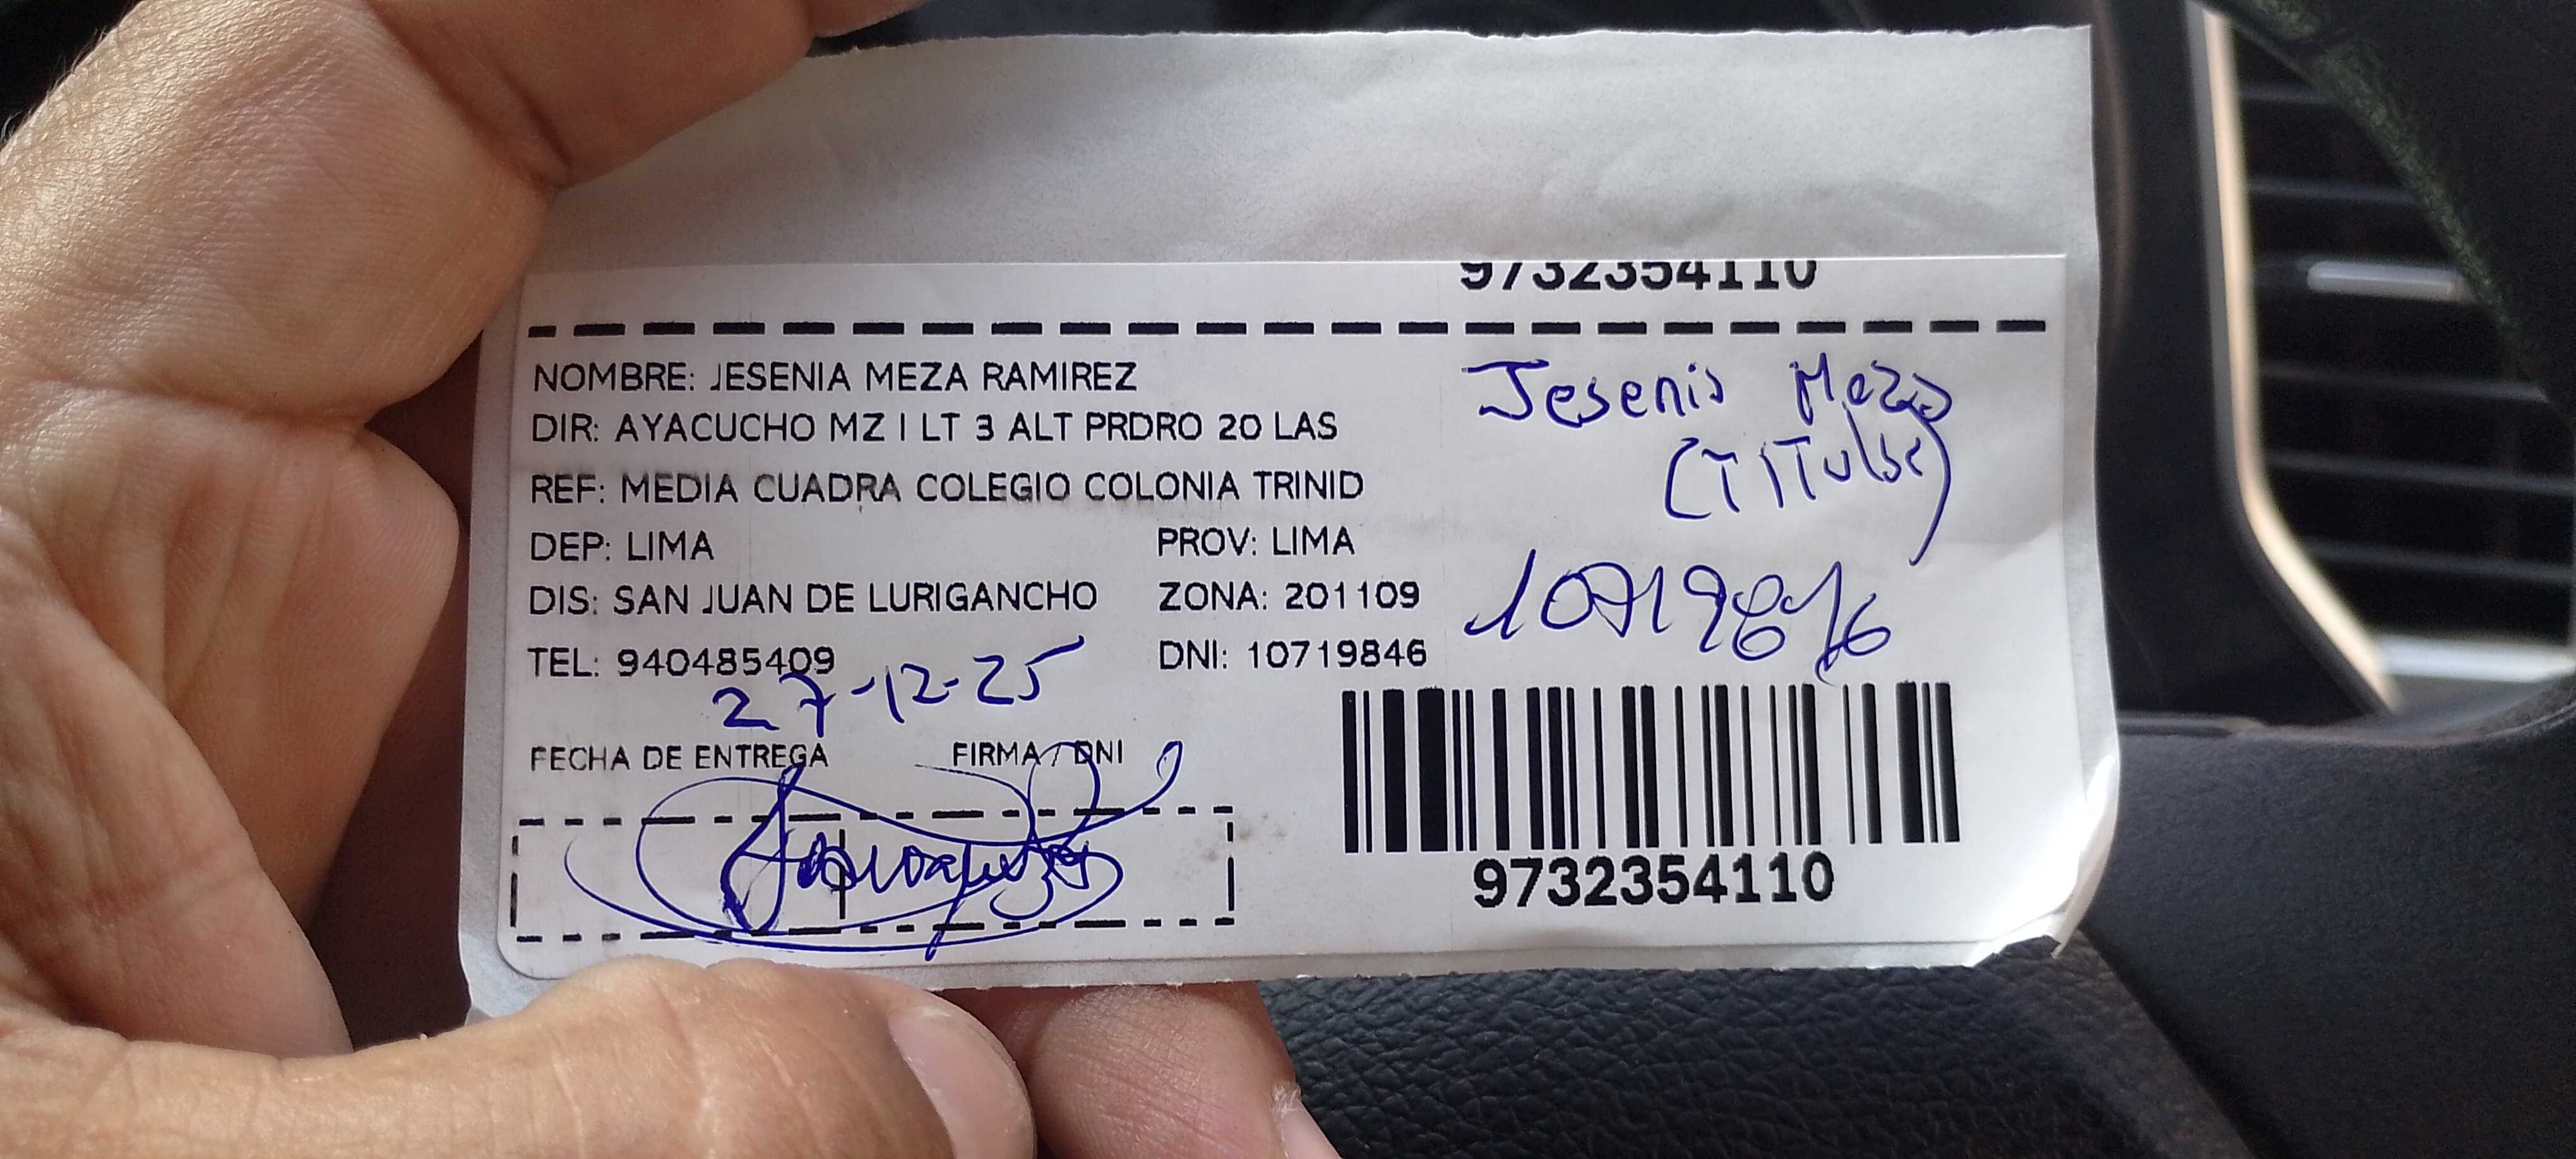 9732354110
NOMBRE: JESENIA MEZA RAMIREZ
Jesenia Meza
DIR: AYACUCHO MZ I LT 3 ALT PRDRO 20 LAS
(TITular)
REF: MEDIA CUADRA COLEGIO COLONIA TRINID
DEP: LIMA PROV: LIMA
DIS: SAN JUAN DE LURIGANCHO ZONA: 201109
10719846
TEL: 940485409 DNI: 10719846
27-12-25
FECHA DE ENTREGA FIRMA / DNI
9732354110